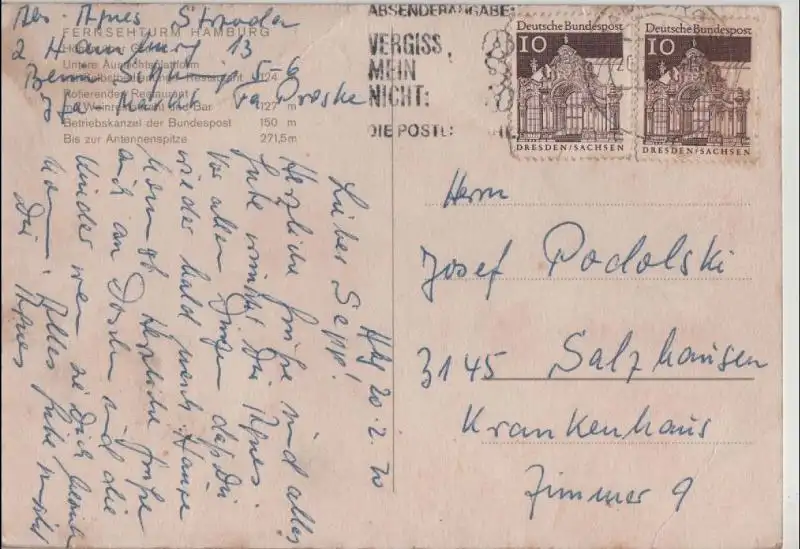 Abs. Agnes
2 Hamburg 13
FERNSEHTURM HAMBURG
Untere Aussichtsplattform
Restaurant 124
Rotierendes Restaurant
und Bar 127 m
Betriebskanzel der Bundespost 150 m
Bis zur Antennenspitze 271,5 m
ABSENDERANGABE:
VERGISS
MEIN
NICHT:
DIE POST
Deutsche Bundespost
10
DRESDEN/SACHSEN
Deutsche Bundespost
10
DRESDEN/SACHSEN
Hbg 20.2.70
Lieber Sepp!
Herzliche Grüße und alles
Gute wünscht Dir Agnes.
Vor allen Dingen daß Du
wieder bald nach Hause
kommst. Herzliche Grüße
auch an und die
Kinder wenn sie Dich
Alles Gute wünscht
Dir Agnes
Herrn
Josef Podolski
3145 Salzhausen
Krankenhaus
Zimmer 9